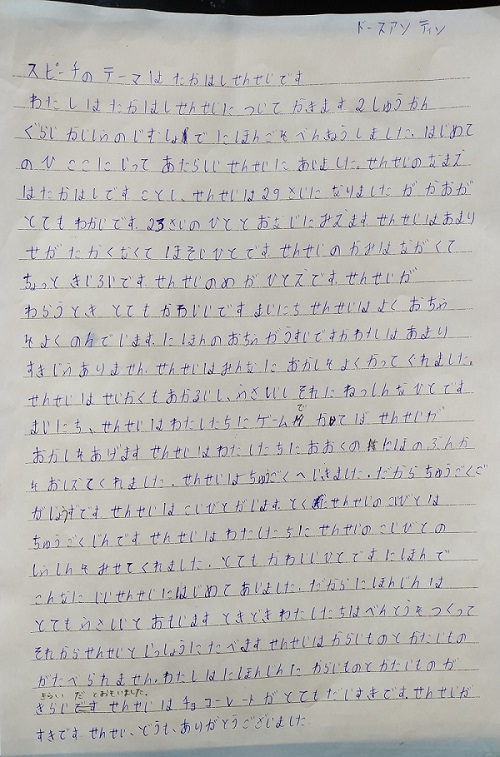 ドースアン ティン
スピーチの テーマは たかはしせんせいです
わたしは たかはしせんせいに ついて かきます 2しゅうかん
ぐらい かいしゃの じむしょで にほんごを べんきょうしました. はじめて
のひ ここに いって あたらしい せんせいに あいました. せんせいの なまえ
はたかはしです ことし、せんせいは 29さいに なりました が かおが
とても わかいです. 23さいの ひとと おなじに みえます せんせいは あまり
せが たかくなくて ほそい ひと です せんせいの かみは ながくて
ちょっと きいろいです. せんせいの めが ひとえです. せんせいが
わらうとき とても かわいいです まいにち せんせいは よく おちゃ
を よく のんでいます. にほんの おちゃが うすいですか わたしは あまり
すきじゃ ありません. せんせいは みんなに おかしを よく かって くれました.
せんせいは せいかくも あかるいし、やさしいし それに ねっしんな ひと です
まいにち、せんせいは わたしたちに ゲームで かては せんせいが
おかしを あげます せんせいは わたしたちに おおくの にほの ぶんか
を おしえてくれました. せんせいは ちゅうごくへ いきました. だから ちゅうごくご
が じょうずです せんせいは こいびとが います. とく に せんせいの こいびとは
ちゅうごくじんです せんせいは わたしたちに せんせいの こいびとの
しゃしんを みせてくれました. とても かわいい ひと です にほんで
こんなに いい せんせいに はじめて あいました. だから にほんじんは
とても やさしいと おもいます ときどき わたしたちは べんとうを つくって
それから せんせいと いっしょうに たべます せんせいは からいものと かたいもの
が たべられません. わたしは にほんじんに からいものと かたいものが
きらい だ とおもいました.
きらいです せんせいは チョコーレートが とても だいすきです. せんせいが
すきです せんせい、どうも、ありがとうございました.